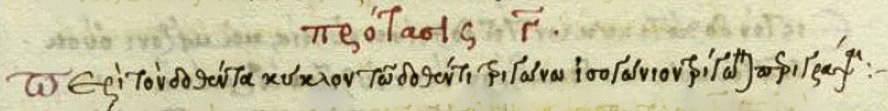 πρότασις γ.
Περὶ τὸν δοθέντα κύκλον τῶ δοθέντι τριγώνω ἰσογώνιον τρίγωνον περιγράψαι :-